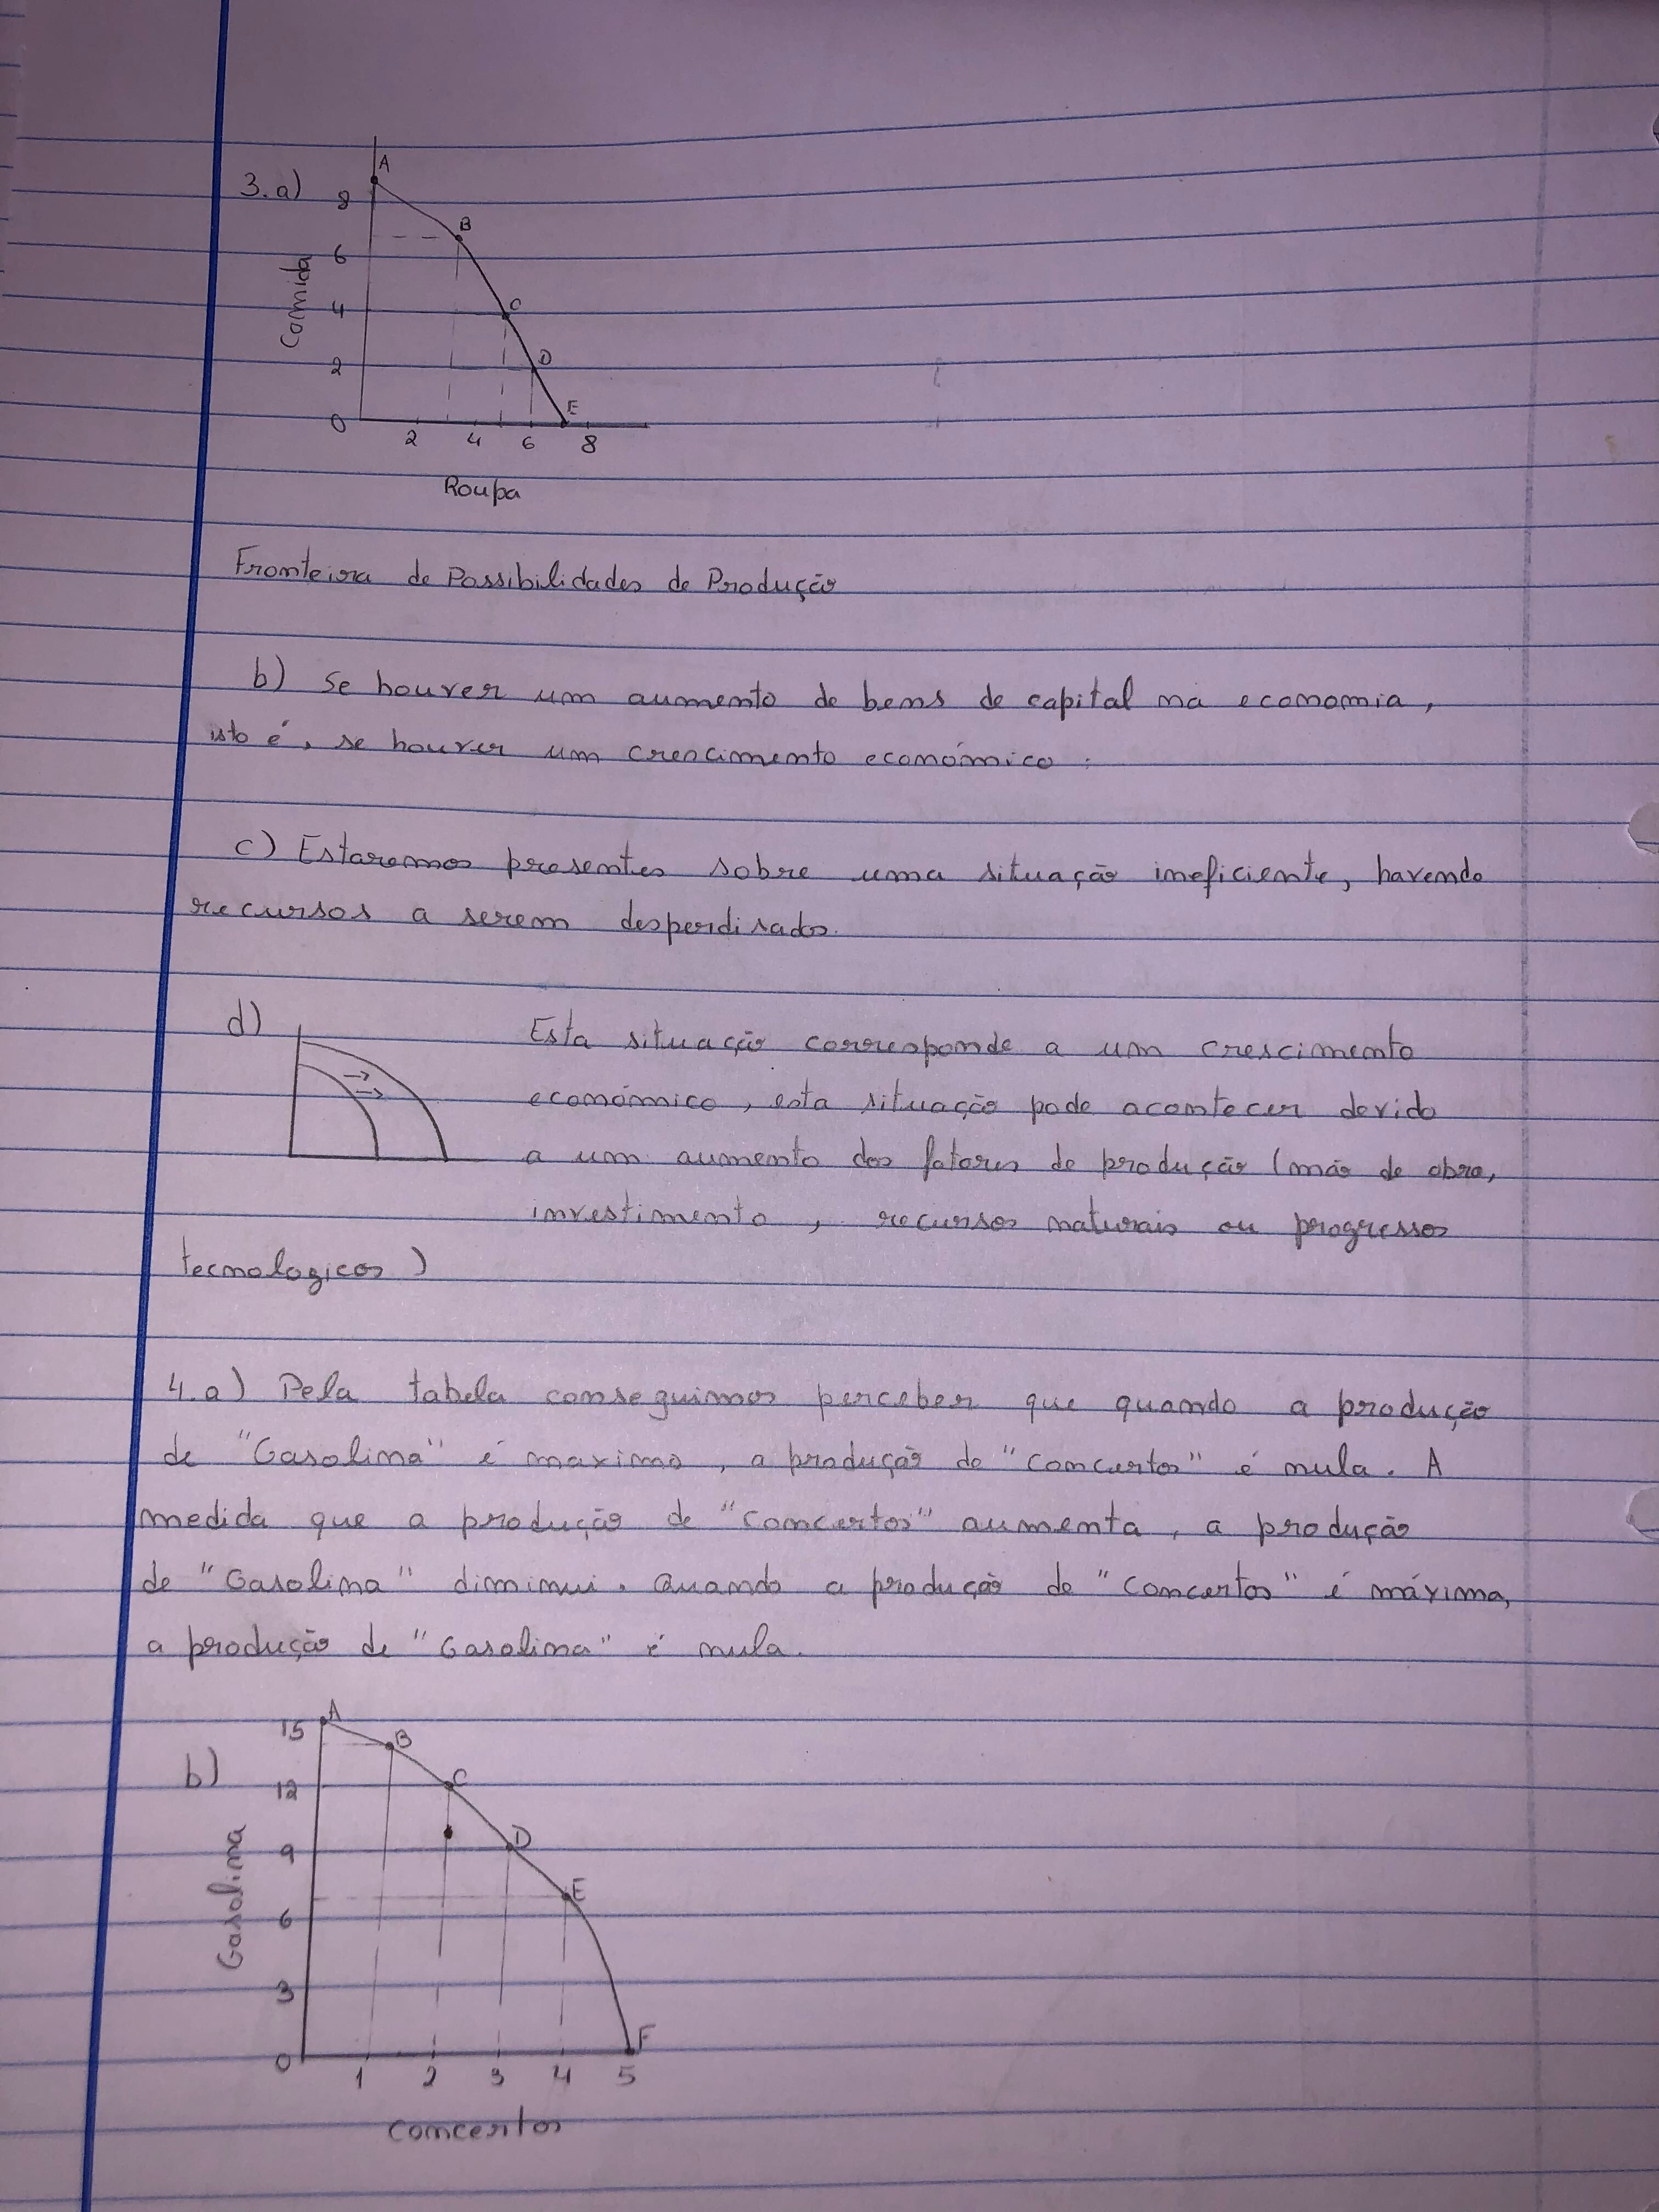 3.a)
A
8
B
6
Comida
4
C
2
D
0
E
2 4 6 8
Roupa
Fronteira de Possibilidades de Produção
b) Se houver um aumento de bens de capital na economia,
isto é, se houver um crescimento económico.
c) Estaremos presentes sobre uma situação ineficiente, havendo
recursos a serem desperdisados.
d) Esta situação corresponde a um crescimento
económico, esta situação pode acontecer devido
a um aumento dos fatores de produção (mão de obra,
investimento, recursos naturais ou progressos
tecnologicos)
4.a) Pela tabela conseguimos perceber que quando a produção
de "Gasolina" é maxima, a produção de "Concertos" é nula. A
medida que a produção de "Concertos" aumenta, a produção
de "Gasolina" diminui. Quando a produção de "Concertos" é máxima,
a produção de "Gasolina" é nula.
A
15
B
b)
12
C
9
D
Gasolina
E
6
3
F
0
1 2 3 4 5
Concertos